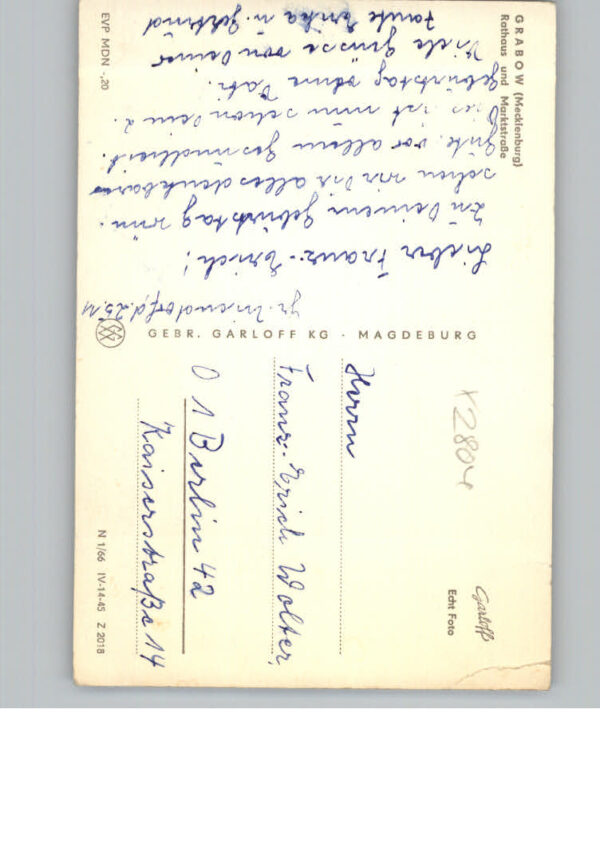 GRABOW (Mecklenburg)
Rathaus und Marktstraße
d. 25.11
Lieber Franz-Erich!
Zu Deinem Geburtstag wün-
schen wir Dir alles denkbar
Gute, vor allem Gesundheit.
Dies ist nun schon Dein 2.
Geburtstag ohne Vati.
Viele Grüsse von Deiner
Tante Erika u.
EVP MDN -,20
GEBR. GARLOFF KG · MAGDEBURG
x2804
Garloff
Echt Foto
Herrn
Franz-Erich Wolter,
O 1 Berlin 42
Kaiserstraße 14
N 1/66 IV-14-45 Z 2018